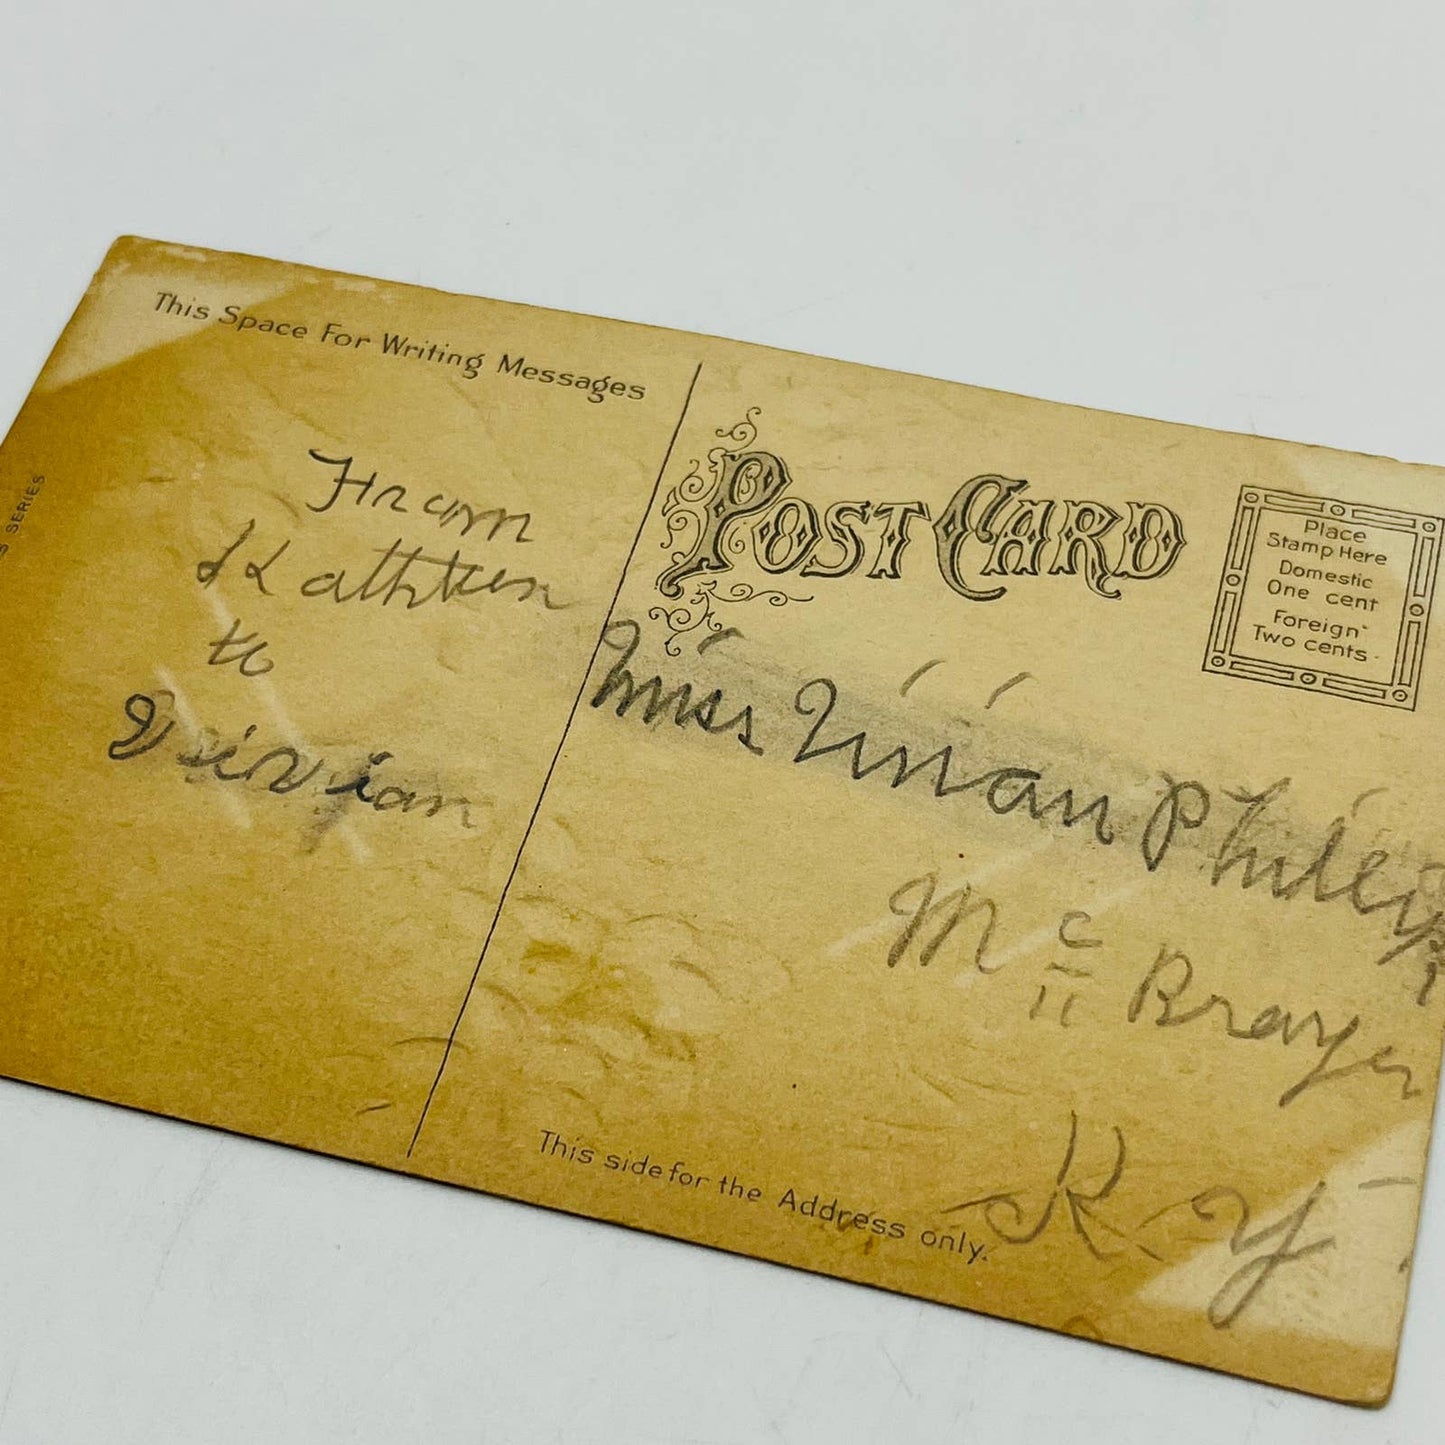 This Space For Writing Messages
SERIES
From
Kathleen
to
Veivian
POST CARD
Place
Stamp Here
Domestic
One cent
Foreign
Two cents
Miss Vivian Phillips
Mc Brayer
Ky
This side for the Address only.